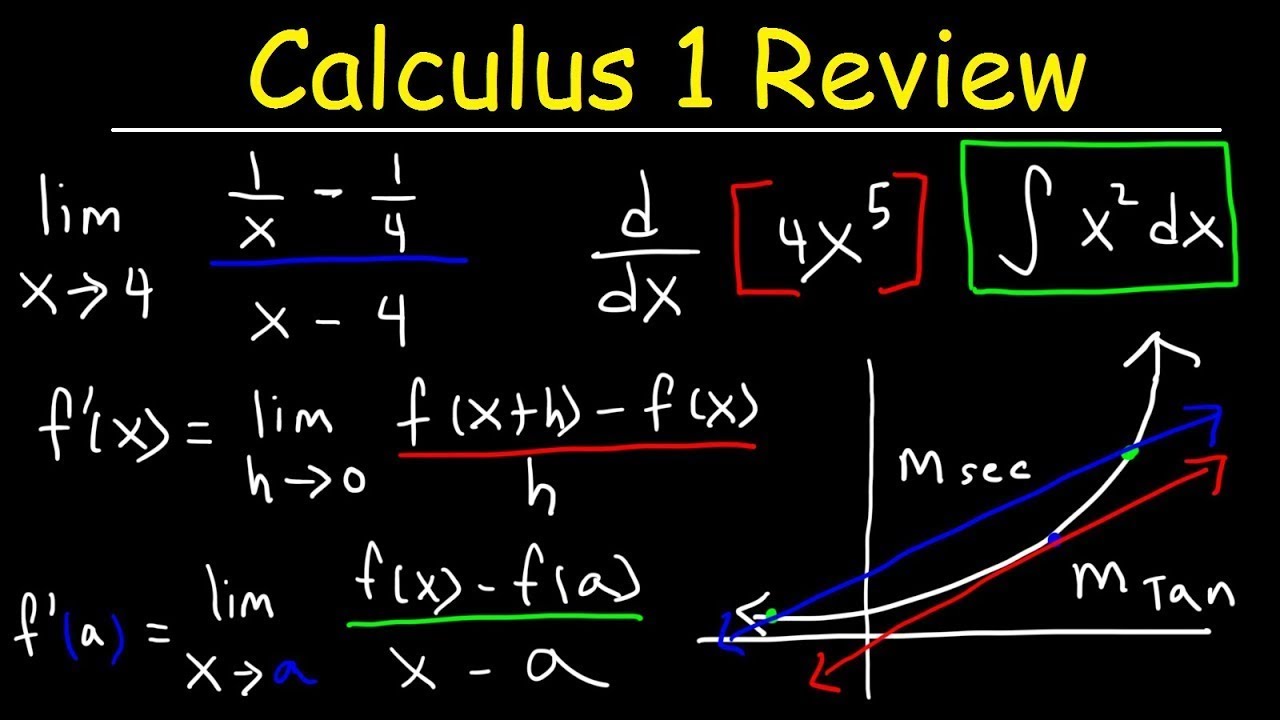 Calculus 1 Review
lim x→4 (1/x - 1/4)/(x - 4)
d/dx [4x⁵]
∫ x² dx
f'(x) = lim h→0 (f(x+h) - f(x))/h
f'(a) = lim x→a (f(x) - f(a))/(x - a)
M sec
M Tan